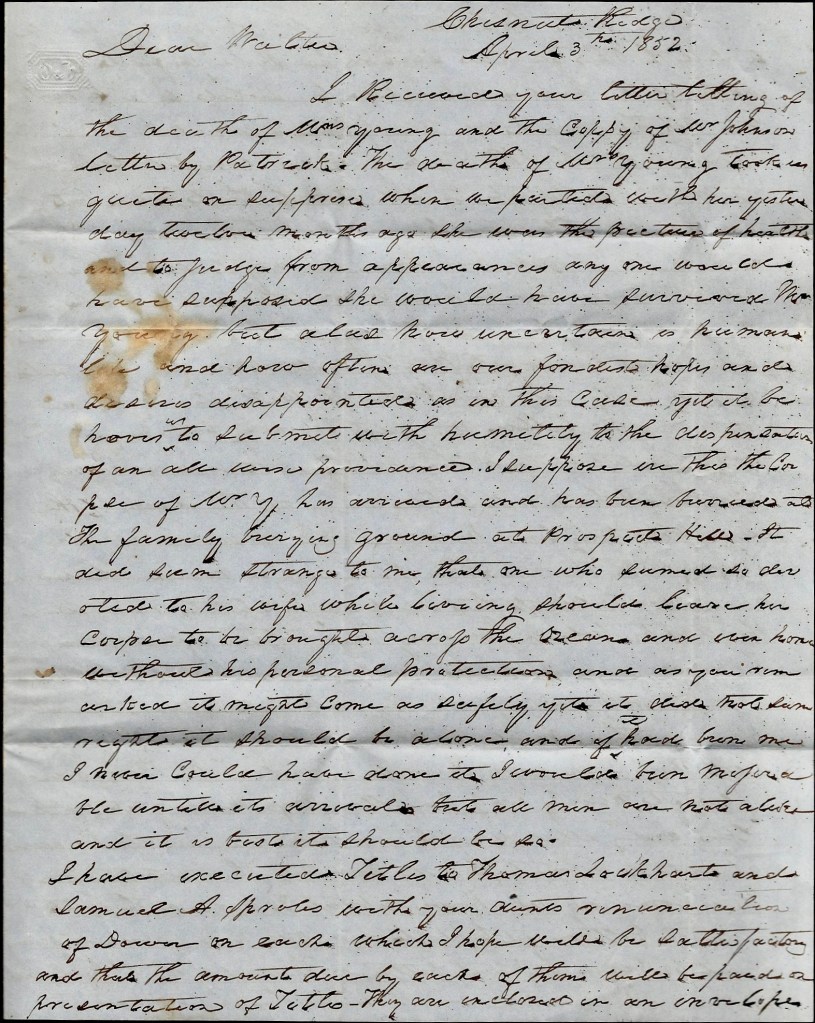 Chesnut Ridge
April 3th 1852
Dear Walter
I Received your letter telling of
the death of Mrs Young and the Coppy of Mr Johnson
letter by Patrick. The death of Mrs Young took us
quite on supprise when we parted with her yester
day twelve months ago she was the picture of health
and to Judge from appearances any one would
have supposed she would have survived Mr
Young but alas how uncertain is human
life and how often are our fondest hopes and
desires disappointed as in this Case yet it be
hooves us to submit with humility to the dispensation
of an all wise providence. I suppose ere this the Cor
pse of Mrs Y, has arrived and has been burried at
the family burying ground at Prospect Hill - It
did seem strange to me, that one who seemed so dev
oted to his wife while living, should leave her
Corpse to be brought across the Ocean and even home
without his personal protection and as you rem
arked it might Come as safely yet it did not seem
right it should be alone and if it had been me
I never Could have done it I would been misera
ble untill its arrival but all men are not alike
and it is best it should be so.
I have executed Titles to Thomas Lockhart and
Samuel A. Sproles with your Aunts renunciation
of Dower on each which I hope will be sattisfactory
and that the amount due by each of them will be paid on
presentation of Titles - They are inclosed in an envelope